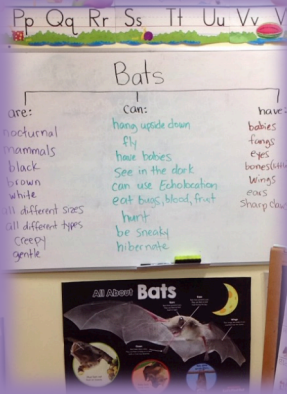 Pp Qq Rr Ss Tt Uu Vv
Bats
are:
nocturnal
mammals
black
brown
white
all different sizes
all different types
creepy
gentle
can:
hang upside down
fly
have babies
see in the dark
can use Echolocation
eat bugs, blood, fruit
hunt
be sneaky
hibernate
have:
babies
fangs
eyes
wings
ears
sharp
All About Bats